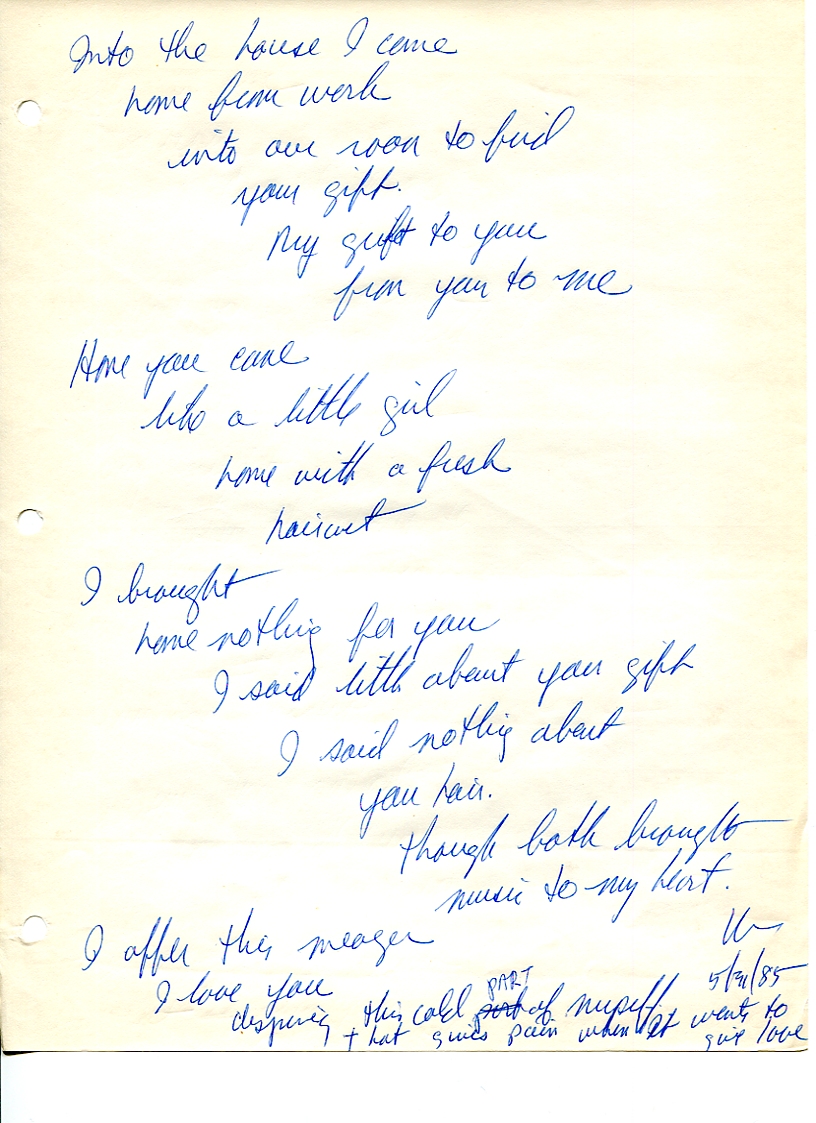 Into the house I come
home from work
into our room to find
your gift.
My gift to you
from you to me
Home you came
like a little girl
home with a fresh
haircut
I brought
home nothing for you
I said little about your gift
I said nothing about
your hair.
though both brought
music to my heart.
I offer this meager
I love you
5/31/85
despising this cold PART of myself
that gives pain when it wants to
give love